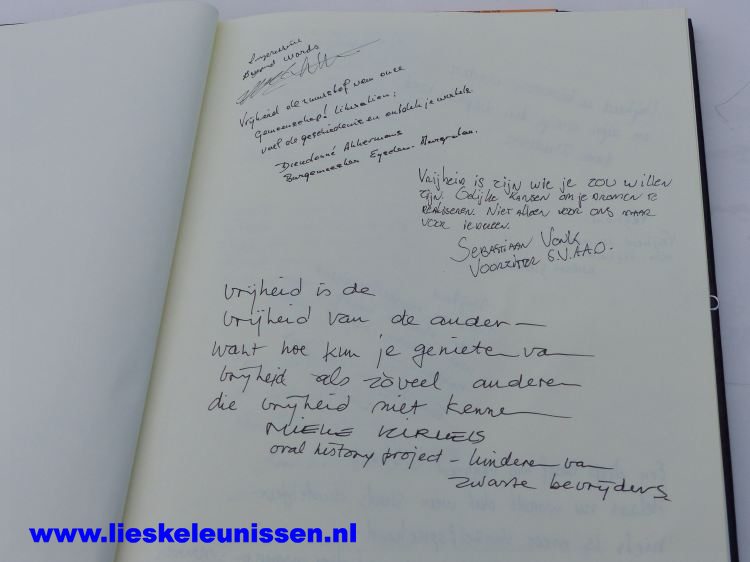 Impressive
Beyond Words
Vrijheid de zuurstof van onze
Gemeenschap! Liberation:
voel de geschiedenis en ontdek je wortels
Dieudonné Akkermans
Burgemeester Eijsden-Margraten.
Vrijheid is zijn wie je zou willen
zijn. Gelijke kansen om je dromen te
realiseren. Niet alleen voor ons maar
voor iedereen.
Sebastiaan Vonk
Voorzitter S.V.A.A.O.
vrijheid is de
vrijheid van de ander —
want hoe kun je genieten van
vrijheid als zóveel anderen
die vrijheid niet kennen
MIEKE KIRKELS
oral history project – kinderen van
zwarte bevrijders
www.lieskeleunissen.nl